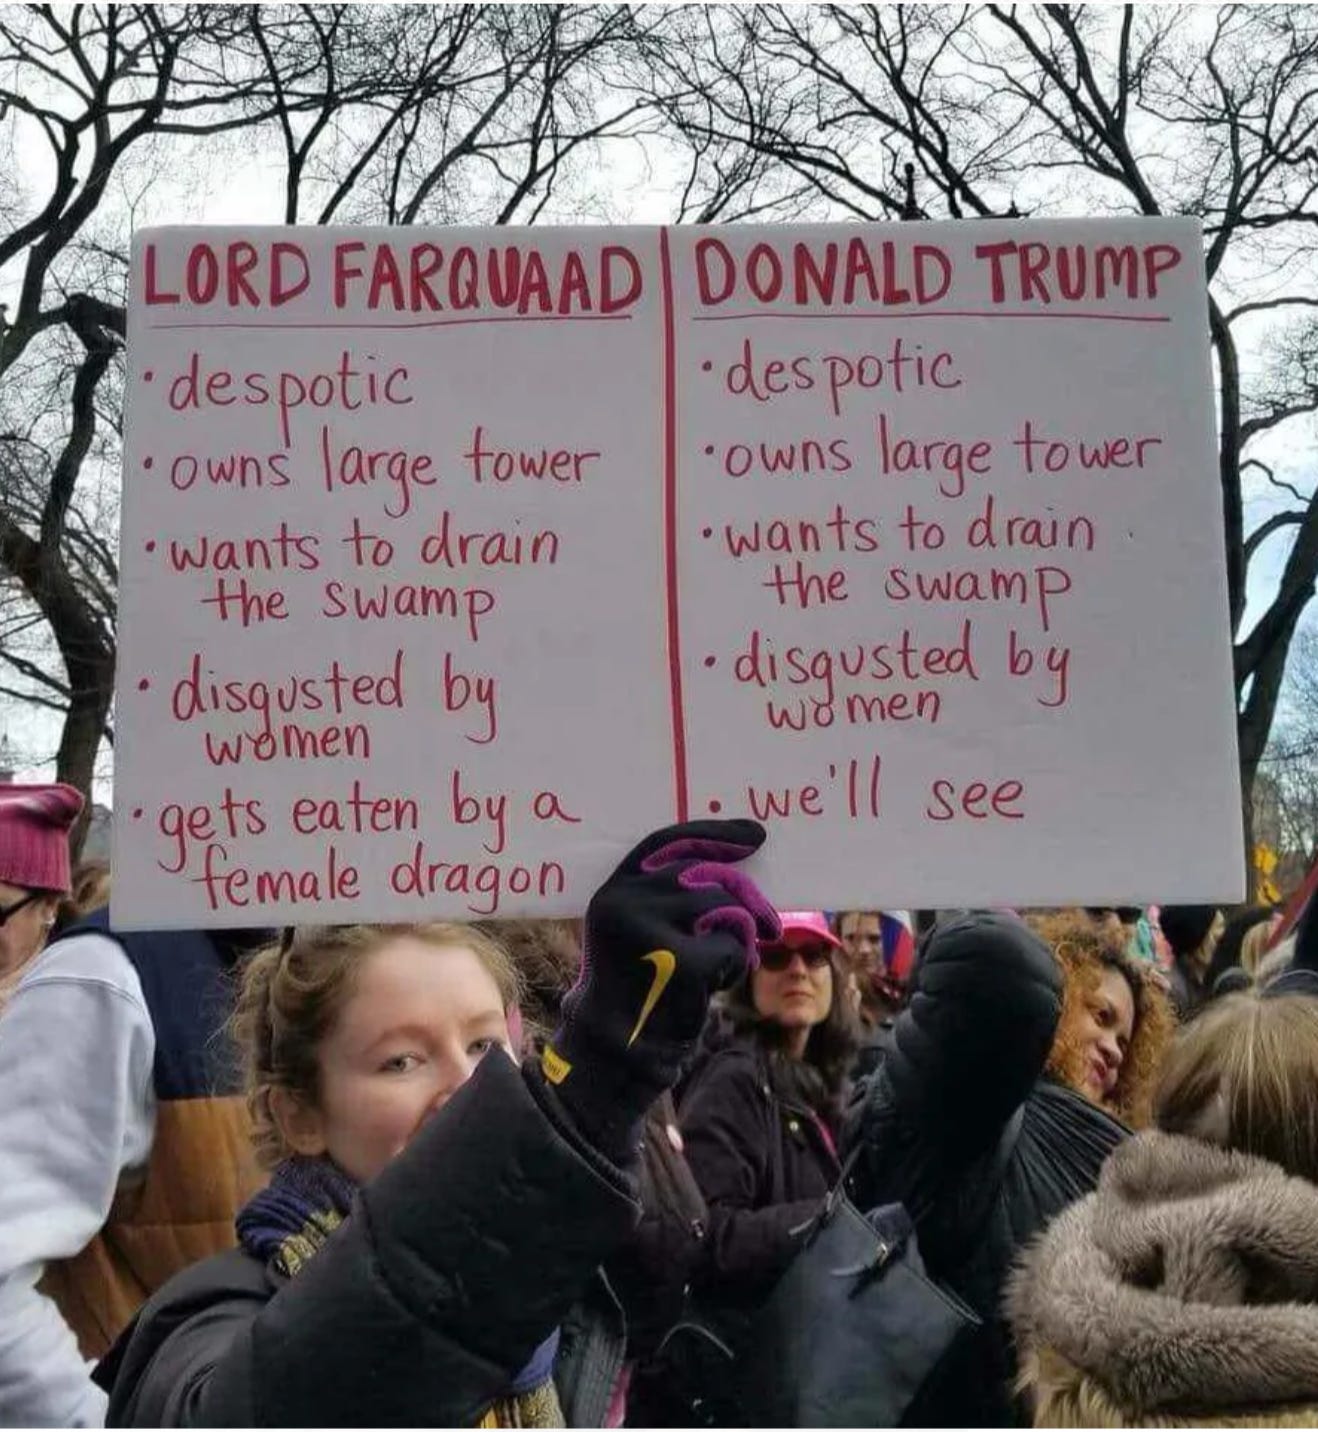 LORD FARQUAAD
• despotic
• owns large tower
• wants to drain
the swamp
• disgusted by
women
• gets eaten by a
female dragon
DONALD TRUMP
• despotic
• owns large tower
• wants to drain
the swamp
• disgusted by
women
• we'll see